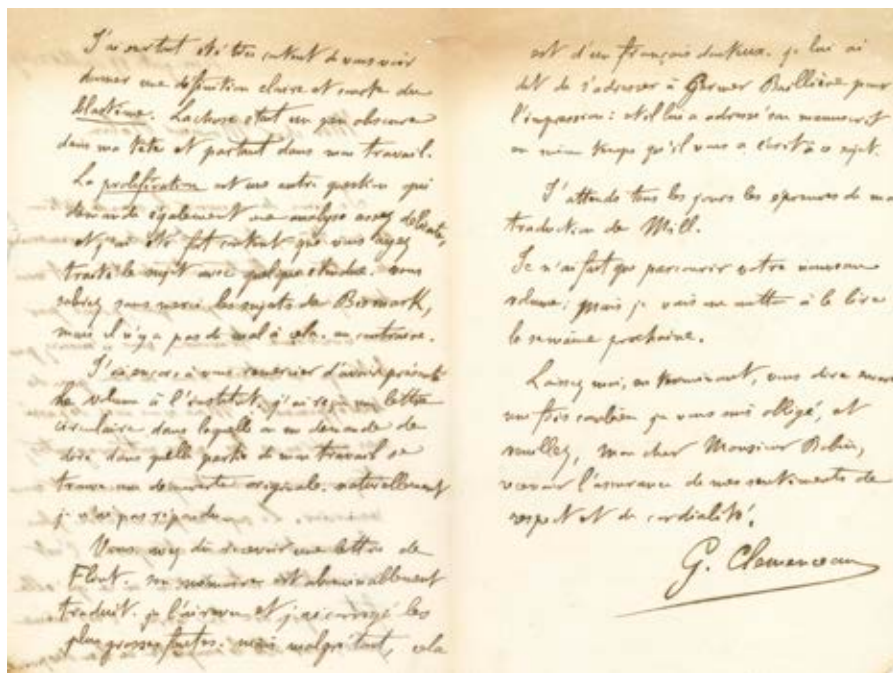 J'ai surtout été très content de vous voir
donner une définition claire et courte du
blastème. La chose était un peu obscure
dans ma tête et partant dans mon travail.
La prolifération est une autre question qui
demande également une analyse assez délicate,
et j'ai été fort content que vous ayez
traité le sujet avec quelque étendue. vous
sabrez sans merci les sujets de Bismark,
mais il n'y a pas de mal à cela. au contraire.
J'ai encore à vous remercier d'avoir présenté
le volume à l'institut. j'ai reçu une lettre
circulaire dans laquelle on me demande de
dire dans quelle partie de mon travail se
trouve une découverte originale. naturellement
je n'ai pas répondu.
Vous avez dû recevoir une lettre de
Flint. son mémoire est abominablement
traduit. je l'ai revu et j'ai corrigé les
plus grosses fautes. mais malgré tout, cela
est d'un français douteux. je lui ai
dit de s'adresser à Germer Baillière pour
l'impression : et il lui a adressé son manuscrit
en même temps qu'il vous a écrit à ce sujet.
J'attends tous les jours les épreuves de ma
traduction de Mill.
Je n'ai fait que parcourir votre nouveau
volume ; mais je vais me mettre à le lire
la semaine prochaine.
Laissez moi, en terminant, vous dire encore
une fois combien je vous suis obligé, et
veuillez, mon cher Monsieur Robin,
recevoir l'assurance de mes sentiments de
respect et de cordialité.
G. Clemenceau